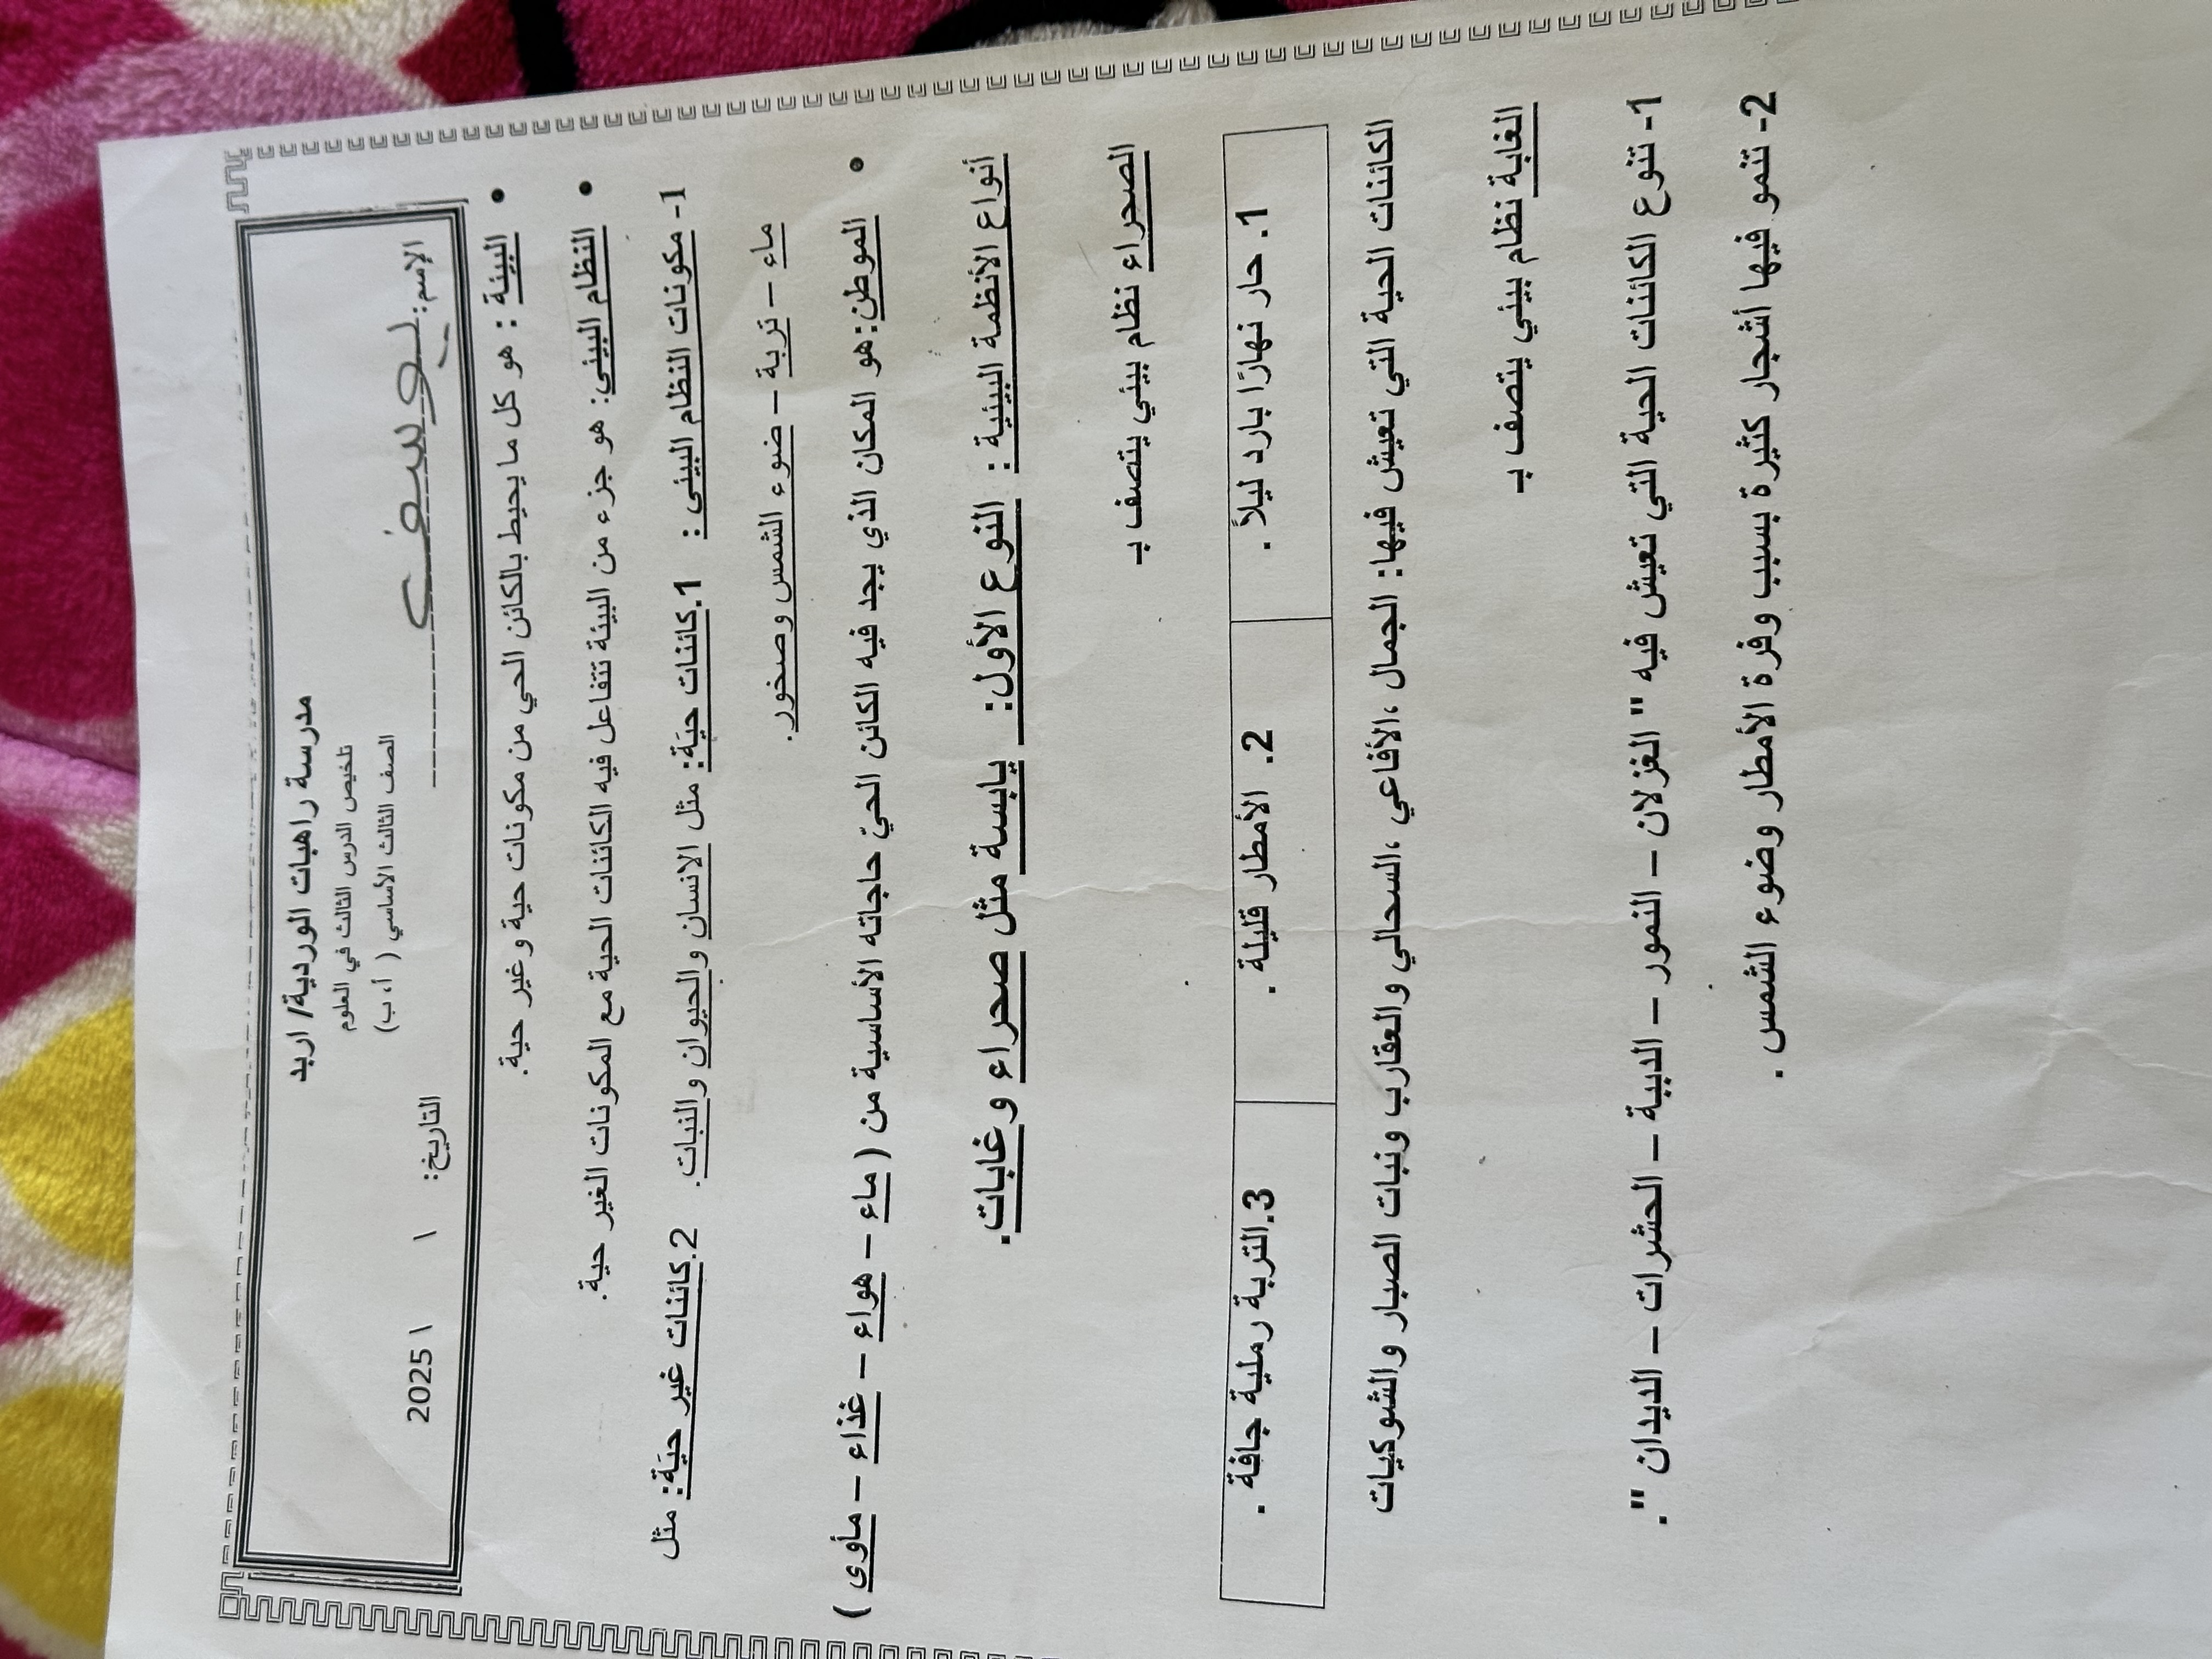 مدرسة راهبات الوردية/ اربد
تلخيص الدرس الثالث في العلوم
الصف الثالث الأساسي ( أ، ب)
الإسم: يوسف التاريخ: \ \ 2025
• البيئة : هو كل ما يحيط بالكائن الحي من مكونات حية وغير حية.
• النظام البيئي: هو جزء من البيئة تتفاعل فيه الكائنات الحية مع المكونات الغير حية.
1- مكونات النظام البيئي : 1.كائنات حيَة: مثل الانسان والحيوان والنبات. 2.كائنات غير حيَة: مثل
ماء – تربة – ضوء الشمس وصخور.
• الموطن: هو المكان الذي يجد فيه الكائن الحيّ حاجاته الأساسية من ( ماء – هواء – غذاء – مأوى )
أنواع الأنظمة البيئية : النوع الأول: يابسة مثل صحراء وغابات.
الصحراء نظام بيئي يتصف بـ
1. حار نهارًا بارد ليلاً . 2. الأمطار قليلة . 3.التربة رملية جافة .
الكائنات الحية التي تعيش فيها: الجمال ،الأفاعي ،السحالي والعقارب ونبات الصبار والشوكيات
الغابة نظام بيئي يتصف بـ
1- تنوع الكائنات الحية التي تعيش فيه " الغزلان – النمور – الدببة – الحشرات – الديدان ".
2- تنمو فيها أشجار كثيرة بسبب وفرة الأمطار وضوء الشمس .